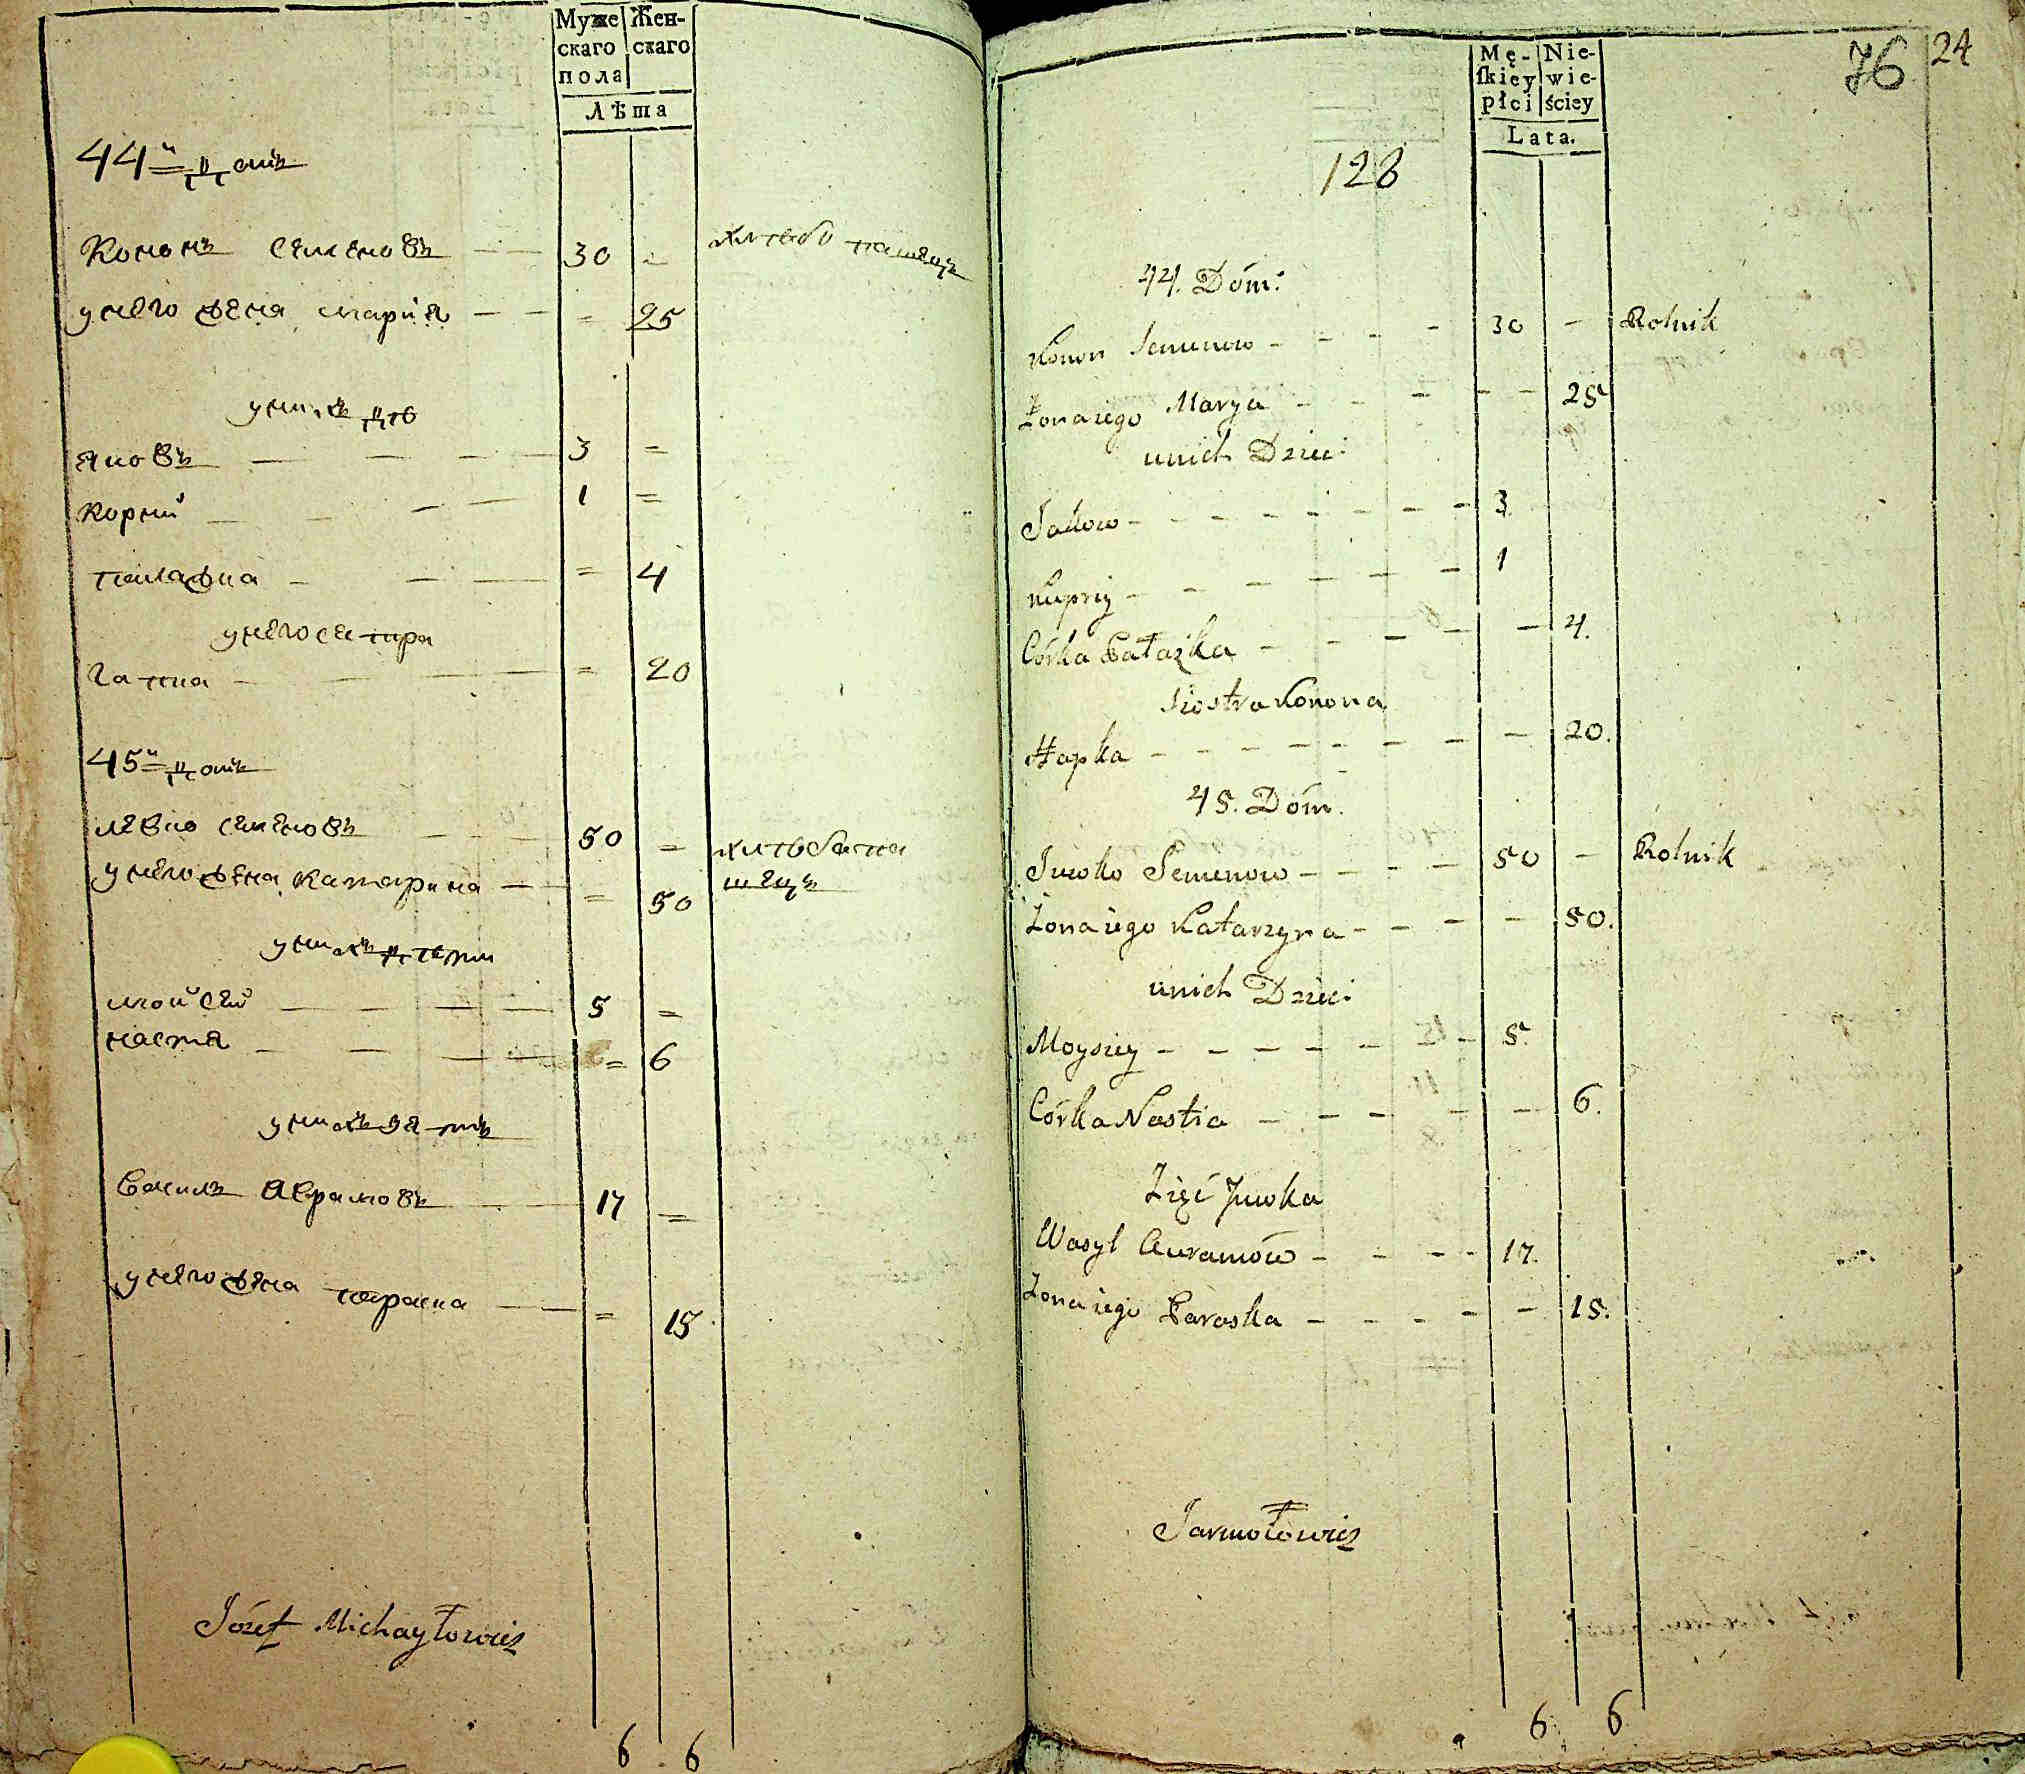 Муже Жен-
скаго скаго
пола
Лѣта
44й домъ
Кононъ Семеновъ — — 30 =
унего жена мария — — = 25
унихъ дѣ
Яковъ — — — 3 =
Корний — — — 1 =
пилажка — — — = 4
унего сестра
гапка — — — = 20
45й домъ
Ивко Семеновъ — — 50 =
унего жена катарина — — = 50
унихъ дѣти
мойсей — — — 5 =
настя — — — = 6
унихъ зять
Василь Аврамовъ — — 17 =
унего жена параска — — = 15
Józef Michayłowicz
6 6
76 24
Mę- Nie-
ſkiey wie-
płci ściey
Lata.
128
44. Dóm:
Konon Semenow - - - - 30 - Rolnik
Żona iego Marya - - - - - 25
u nich Dzieci
Jakow - - - - - - - - 3
Kupriy - - - - - - 1
Córka Pałażka - - - - - 4.
siostra Konona
Hapka - - - - - - - - 20.
45. Dóm.
Iwko Semenow - - - - 50 - Rolnik
Żona iego Katarzyna - - - - 50.
u nich Dzieci
Moysiey - - - - - - - 5.
Córka Nastia - - - - - 6.
Zięć Iwka
Wasyl Auramów - - - - 17.
Żona iego Paraska - - - - - 15.
Jarmołowicz
6 6